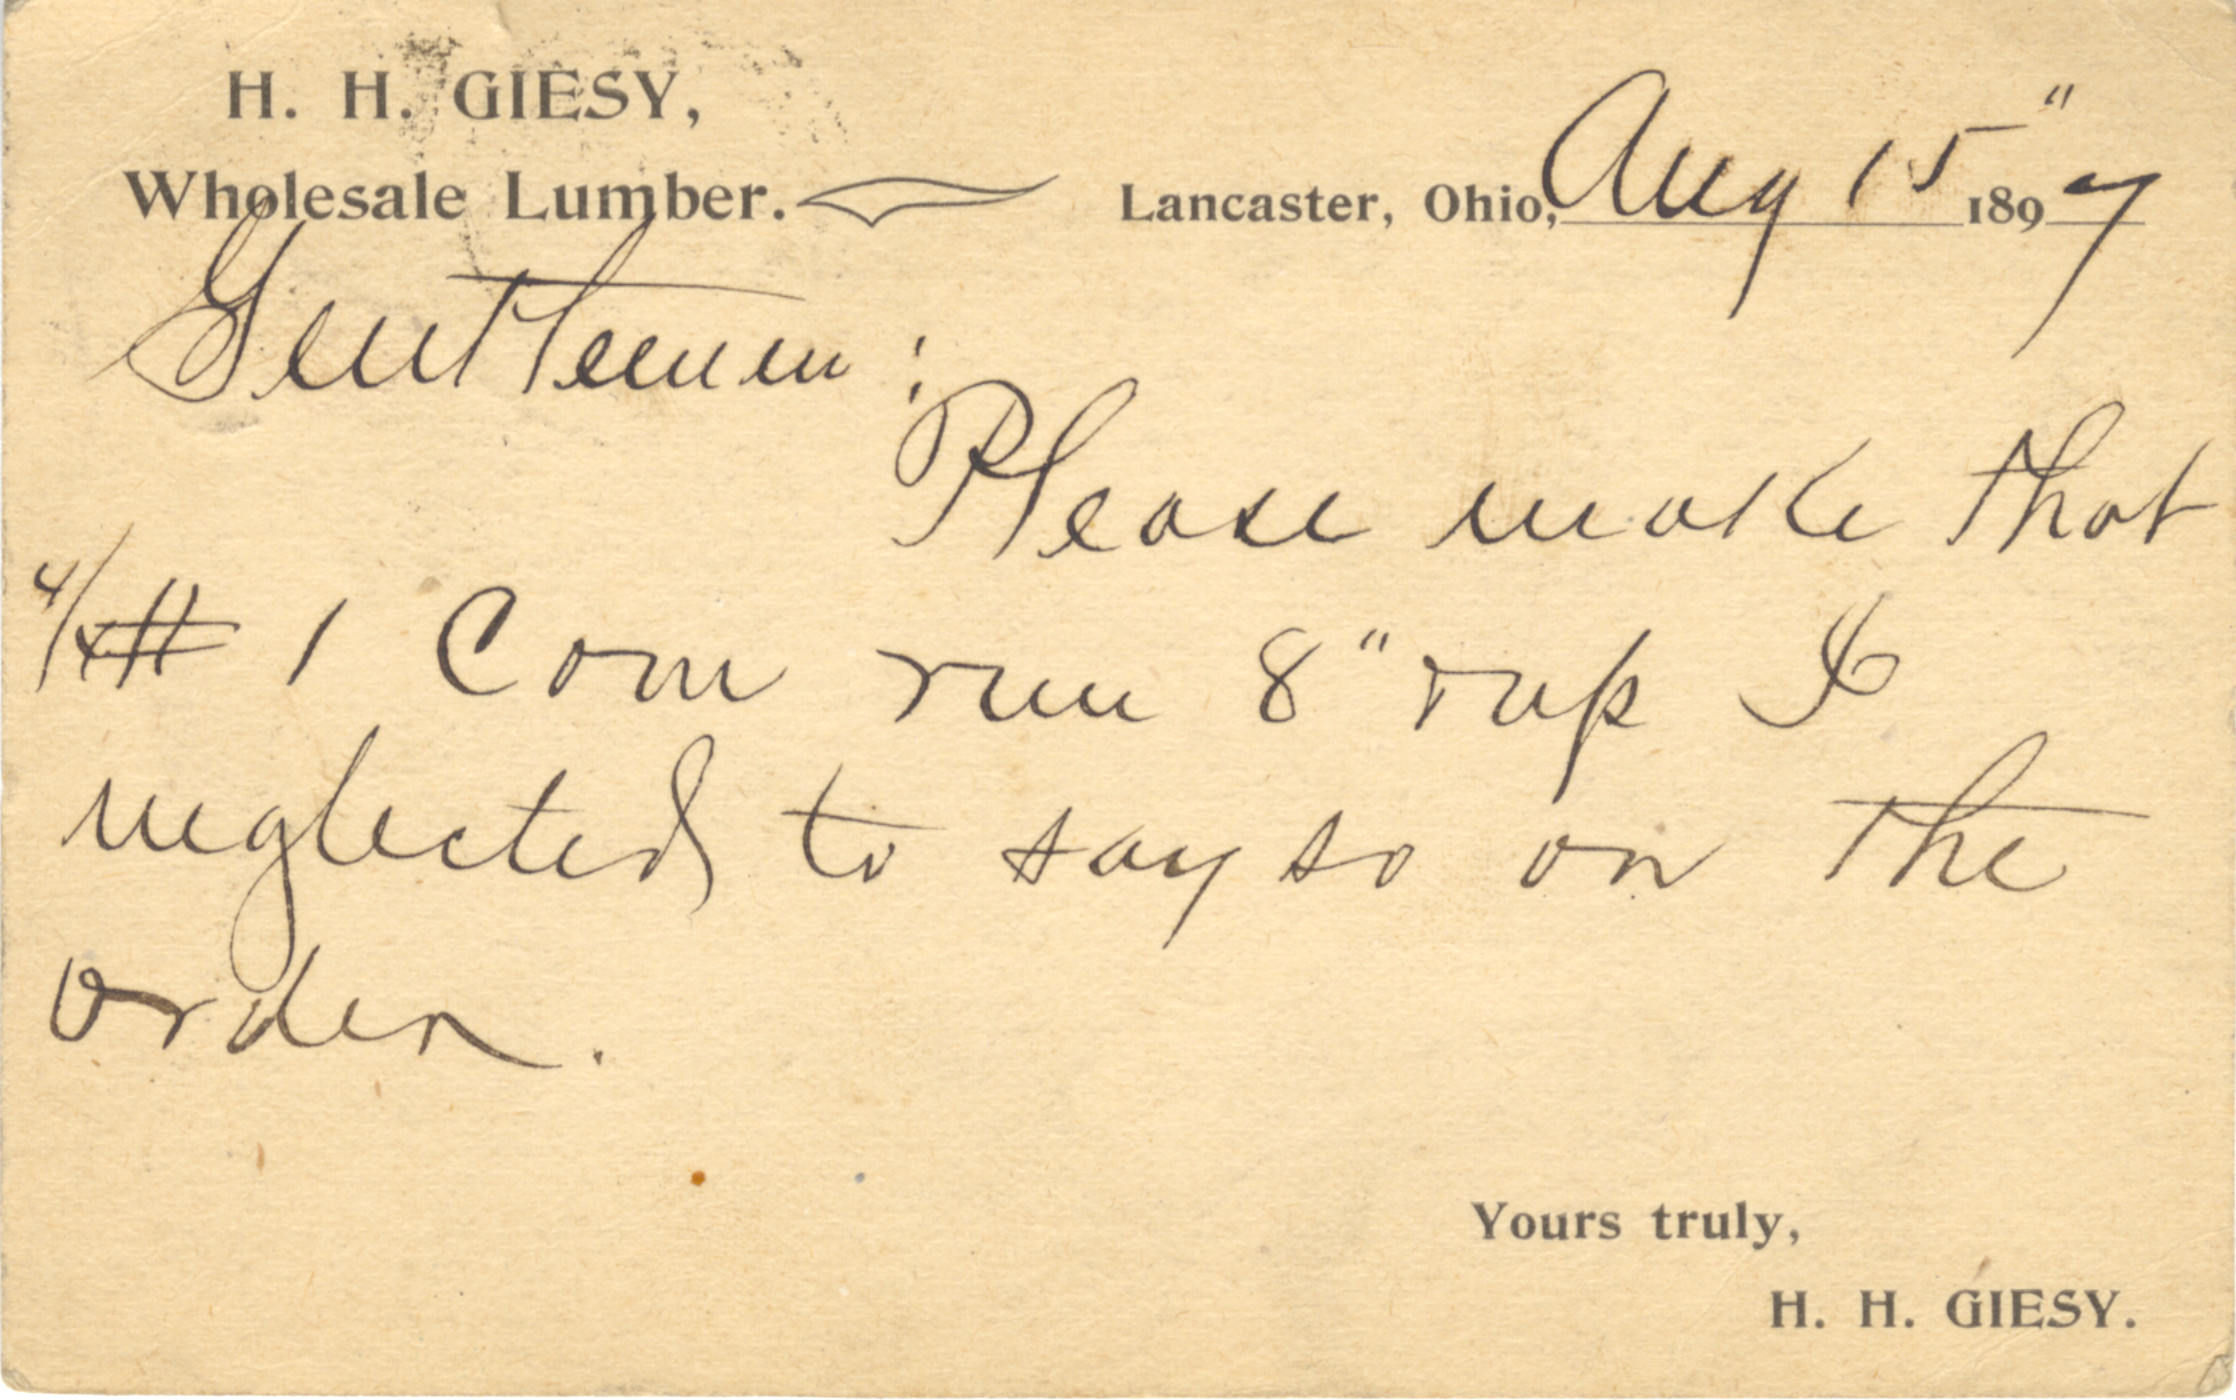 H. H. GIESY,
Wholesale Lumber. Lancaster, Ohio, Aug 15" 1897
Gentlemen:
Please make that
4/4 # 1 Com run 8" & up I
neglected to say so on the
order.
Yours truly,
H. H. GIESY.